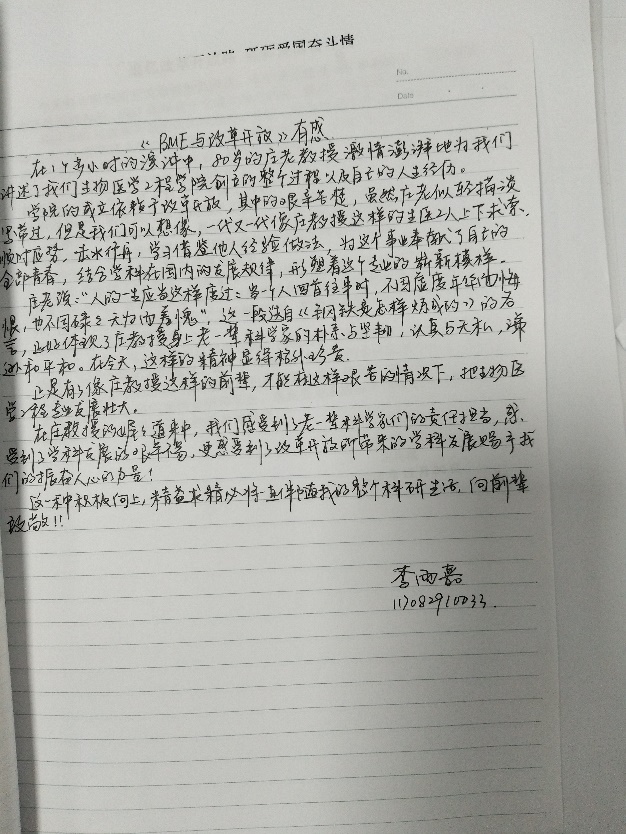 爱国奋斗情
No.
Date
《BME与改革开放》有感
在1个多小时的演讲中，80岁的庄老教授激情澎湃地为我们
讲述了我们生物医学工程学院创立的整个过程以及自己的人生经历。
学院的成立依托于改革开放，其中的艰辛苦楚，虽然庄老似轻描谈
写带过，但是我们可以想像，一代又一代像庄教授这样的生医工人上下求索，
顺时应势，击水行舟，学习借鉴他人经验做法，为这个事业奉献了自己的
全部青春，结合学科在国内的发展规律，形塑着这个专业的崭新模样。
庄老说：“人的一生应当这样度过：当一个人回首往事时，不因虚度年华而悔
恨，也不因碌碌无为而羞愧”，这一段选自《钢铁是怎样炼成的》的名
言，正好体现了庄教授身上老一辈科学家的朴素与坚韧，认真与无私，谦
逊和平和。在今天，这样的精神显得格外珍贵。
正是有了像庄教授这样的前辈，才能在这样艰苦的情况下，把生物医
学工程专业发展壮大。
在庄教授的娓娓道来中，我们感受到了老一辈科学家们的责任担当，感
受到了学科发展的艰辛不易，更感受到了改革开放所带来的学科发展赐予我
们的振奋人心的力量！
这一种积极向上，精益求精必将一直伴随我的整个科研生活，向前辈
致敬！！
李雨嘉
11082910033.